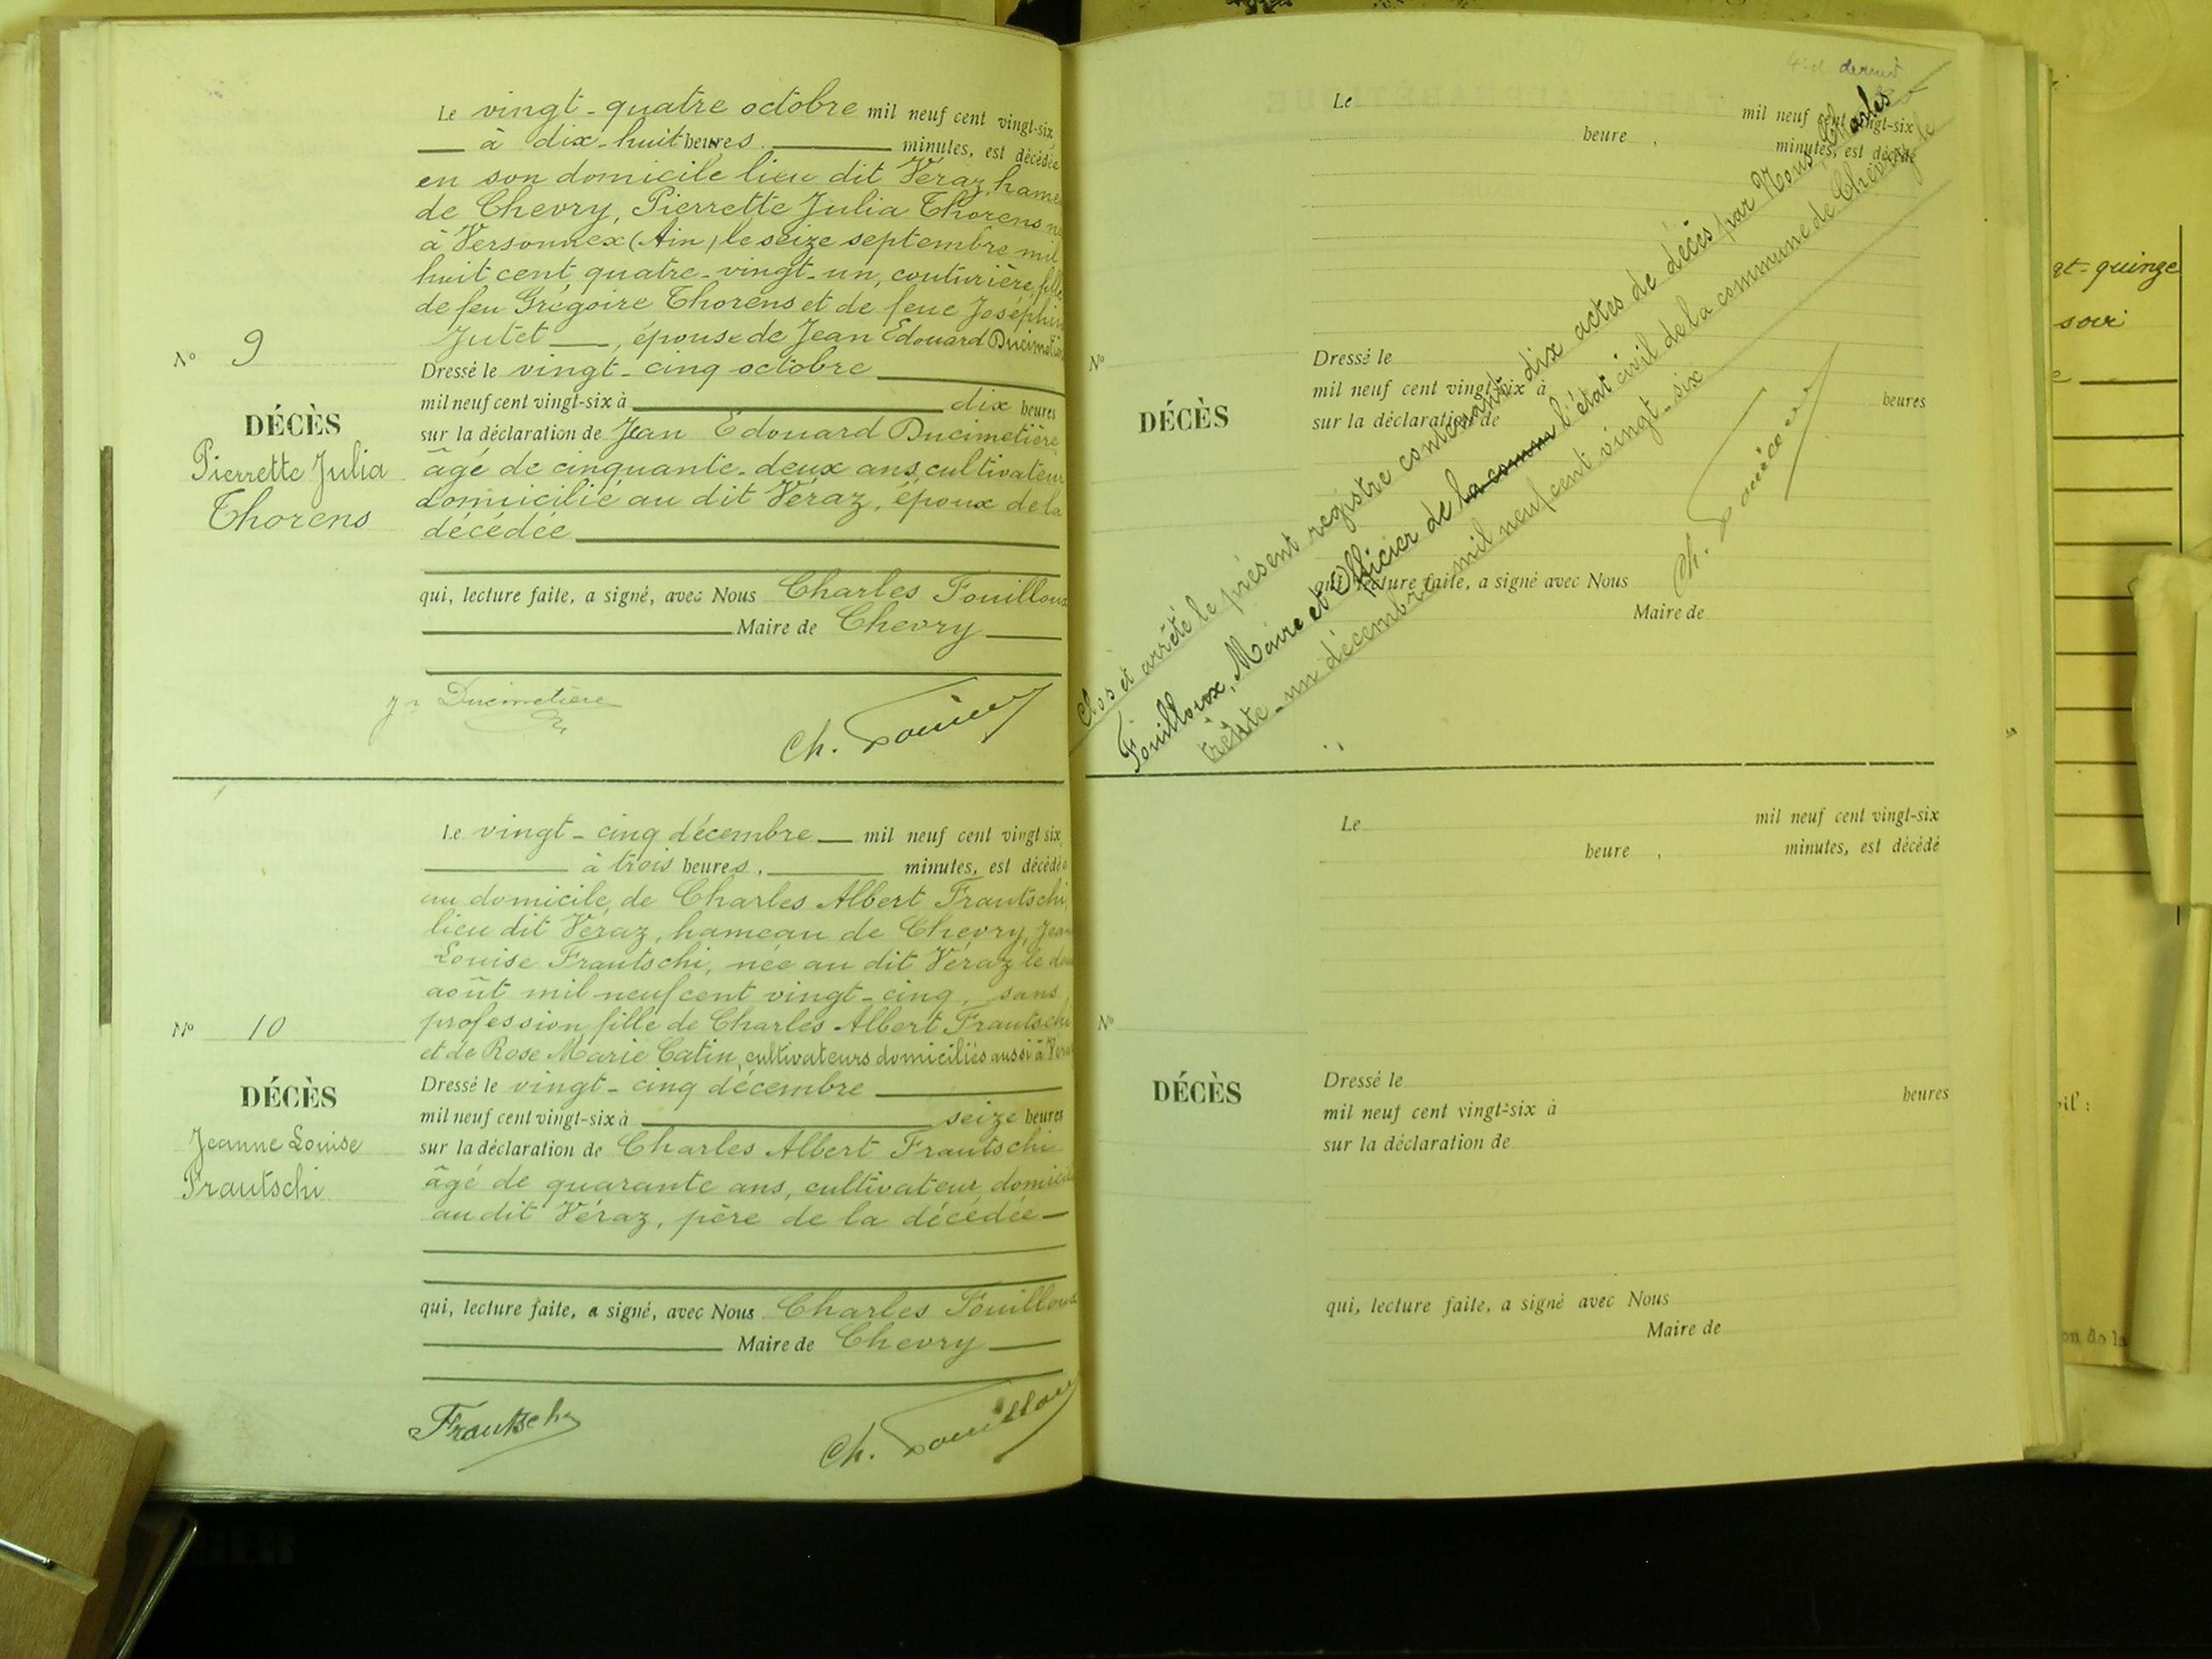 Le vingt-quatre octobre mil neuf cent vingt-six,
à dix-huit heures minutes, est décédée
en son domicile lieu dit Véraz, hame
de Chevry, Pierrette Julia Thorens né
à Versonnex (Ain) le seize septembre mil
huit cent quatre-vingt-un, couturière, fille
de feu Grégoire Thorens et de feue Joséphin
Jutet, épouse de Jean Edouard Ducimetiè
N° 9
Dressé le vingt-cinq octobre
mil neuf cent vingt-six à dix heures
DÉCÈS
sur la déclaration de Jean Edouard Ducimetière
Pierrette Julia
Thorens
âgé de cinquante-deux ans, cultivateur
domicilié au dit Véraz, époux de la
décédée
qui, lecture faite, a signé, avec Nous Charles Fouilloux
Maire de Chevry
Jn Ducimetière
Ch. Fouilloux
Le vingt-cinq décembre mil neuf cent vingt six,
à trois heures, minutes, est décédée
au domicile de Charles Albert Frautschi,
lieu dit Véraz, hameau de Chevry, Jean
Louise Frautschi, née au dit Véraz le
août mil neuf cent vingt-cinq, sans
N° 10
profession, fille de Charles Albert Frautschi
et de Rose Marie Catin, cultivateurs domiciliés aussi à Véra
Dressé le vingt-cinq décembre
DÉCÈS
mil neuf cent vingt-six à seize heures
Jeanne Louise
Frautschi
sur la déclaration de Charles Albert Frautschi
âgé de quarante ans, cultivateur domicil
au dit Véraz, père de la décédée
qui, lecture faite, a signé, avec Nous Charles Fouilloux
Maire de Chevry
Frautschi
Ch. Fouilloux
dernier
Le mil neuf cent vingt-six
heure , minutes, est décédé
N°
DÉCÈS
Dressé le
mil neuf cent vingt-six à heures
sur la déclaration de
qui, lecture faite, a signé avec Nous
Maire de
Clos et arrêté le présent registre contenant dix actes de décès par Nous Charles
Fouilloux, Maire et Officier de la comm l'état civil de la commune de Chevry le
trente-un décembre mil neuf cent vingt-six
Ch. Fouilloux
Le mil neuf cent vingt-six
heure , minutes, est décédé
N°
DÉCÈS
Dressé le
mil neuf cent vingt-six à heures
sur la déclaration de
qui, lecture faite, a signé avec Nous
Maire de
gt-quinze
soir
on de la